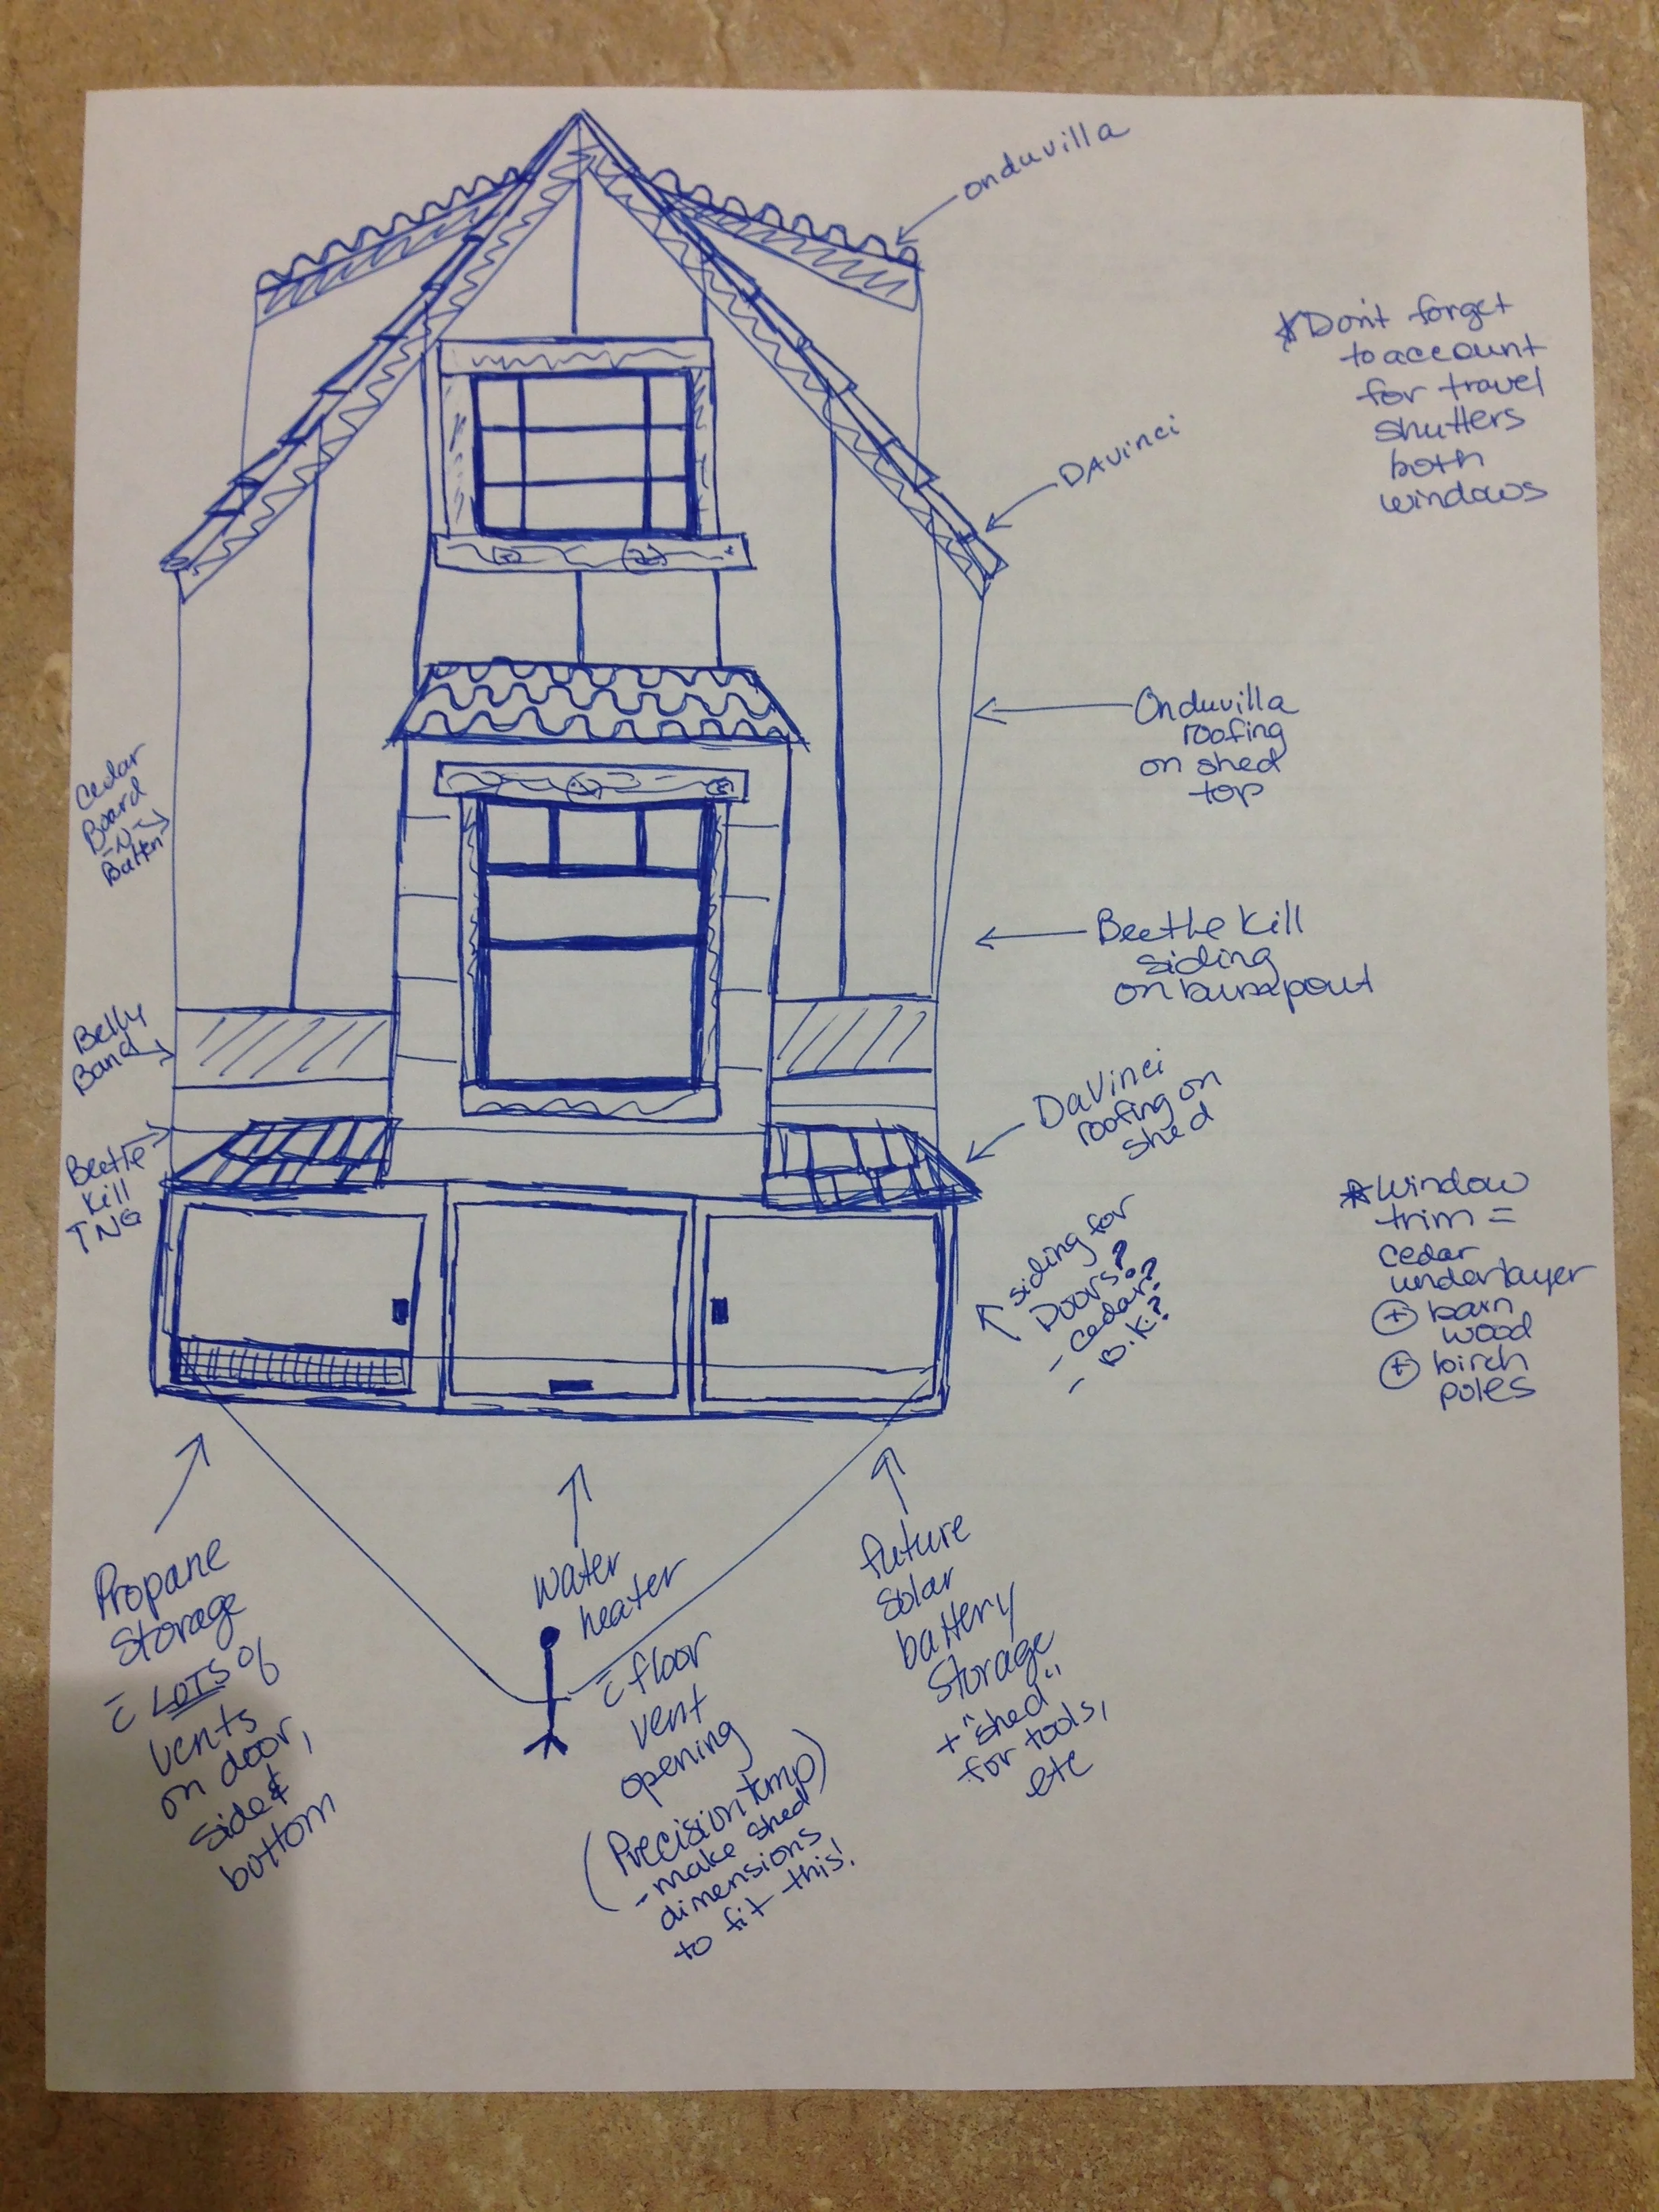 onduvilla
*Don't forget
to account
for travel
shutters
both
windows
DAvinci
Onduvilla
roofing
on shed
top
Cedar
Board
-N-
Batten
Beetle Kill
siding
on bumpout
Belly
Band
DaVinci
roofing on
shed
Beetle
Kill
TNG
*Window
trim =
cedar
underlayer
+ barn
wood
+ birch
poles
siding for
Doors?
- cedar?
- B.K.?
Propane
Storage
c̄ LOTS of
vents
on door,
side &
bottom
water
heater
c̄ floor
vent
opening
(Precision temp)
- make shed
dimensions
to fit this!
future
solar
battery
storage
+ "shed"
for tools,
etc